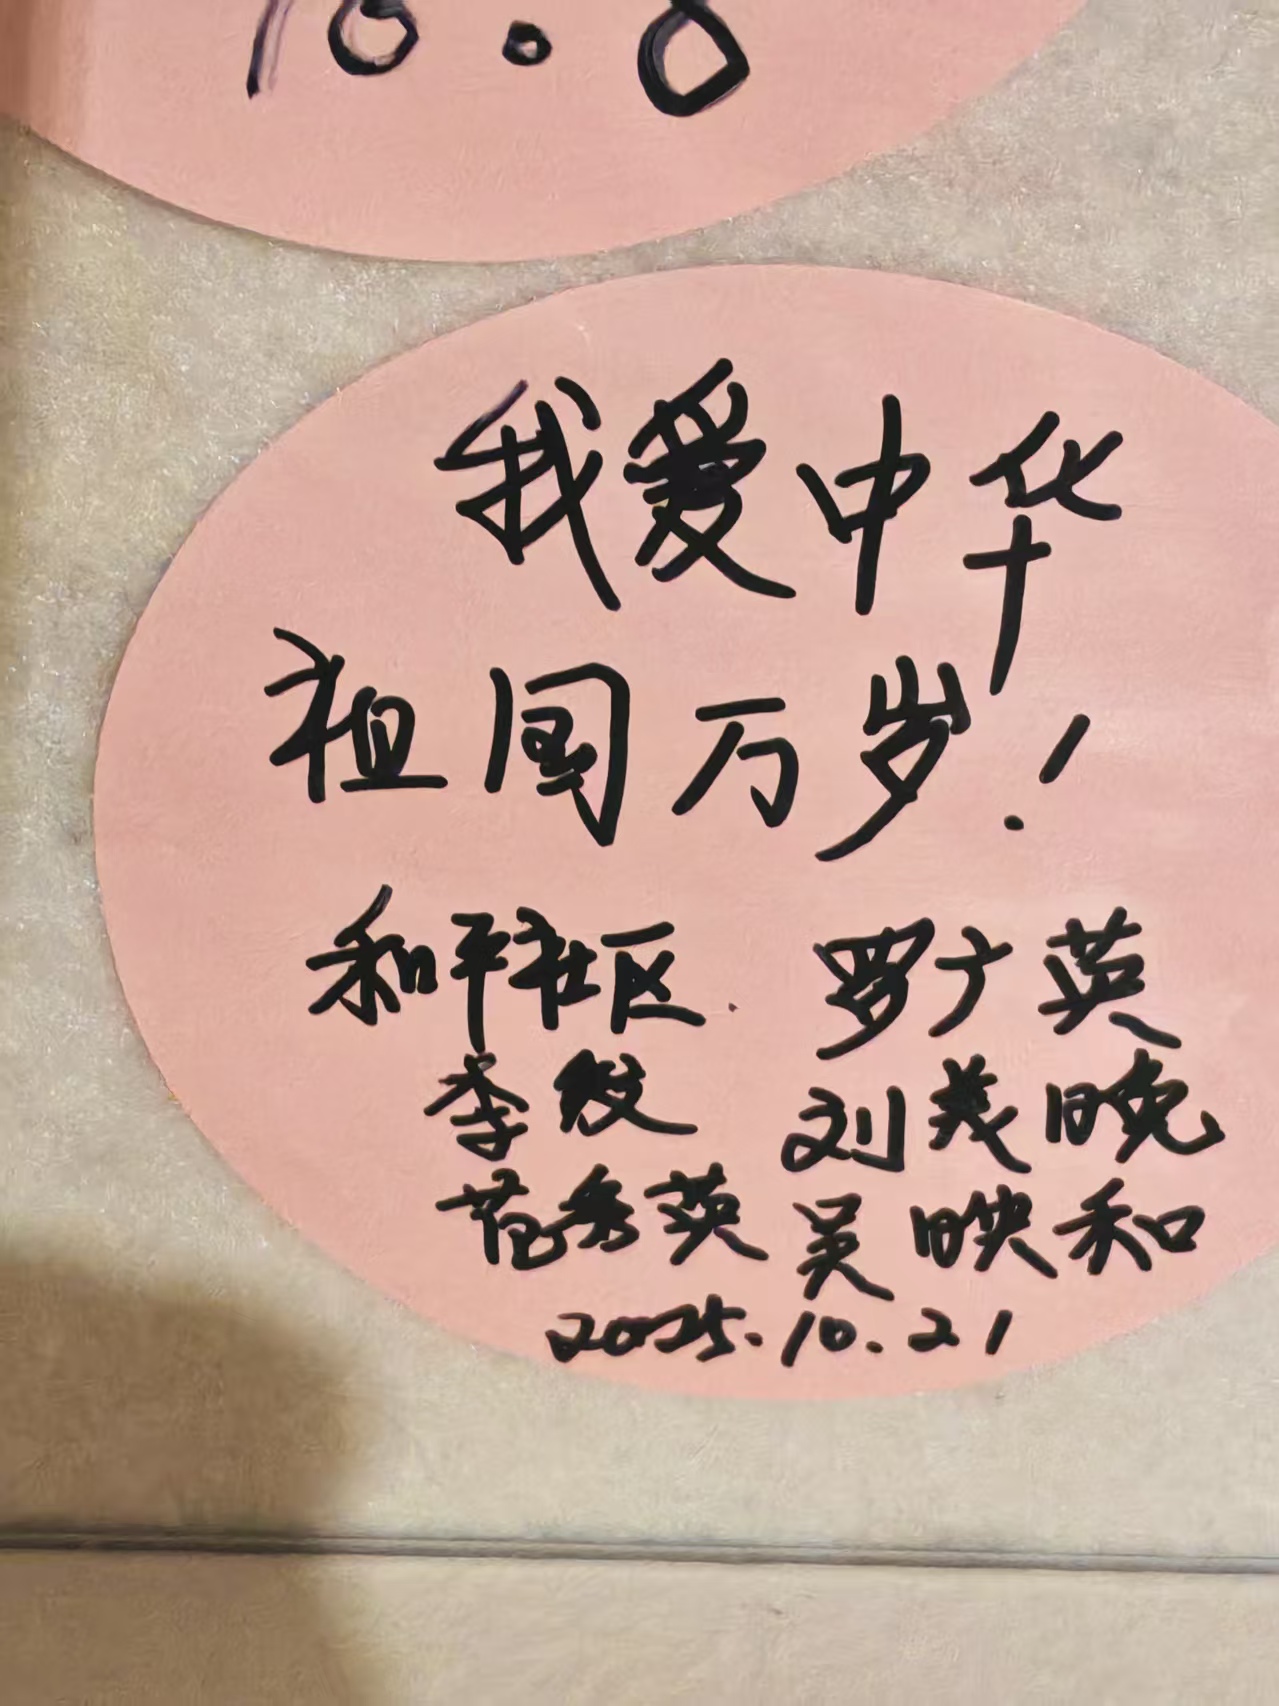 10.8
我爱中华
祖国万岁！
和平社区 罗广英
李姣 刘美晚
范秀英 吴映和
2025.10.21